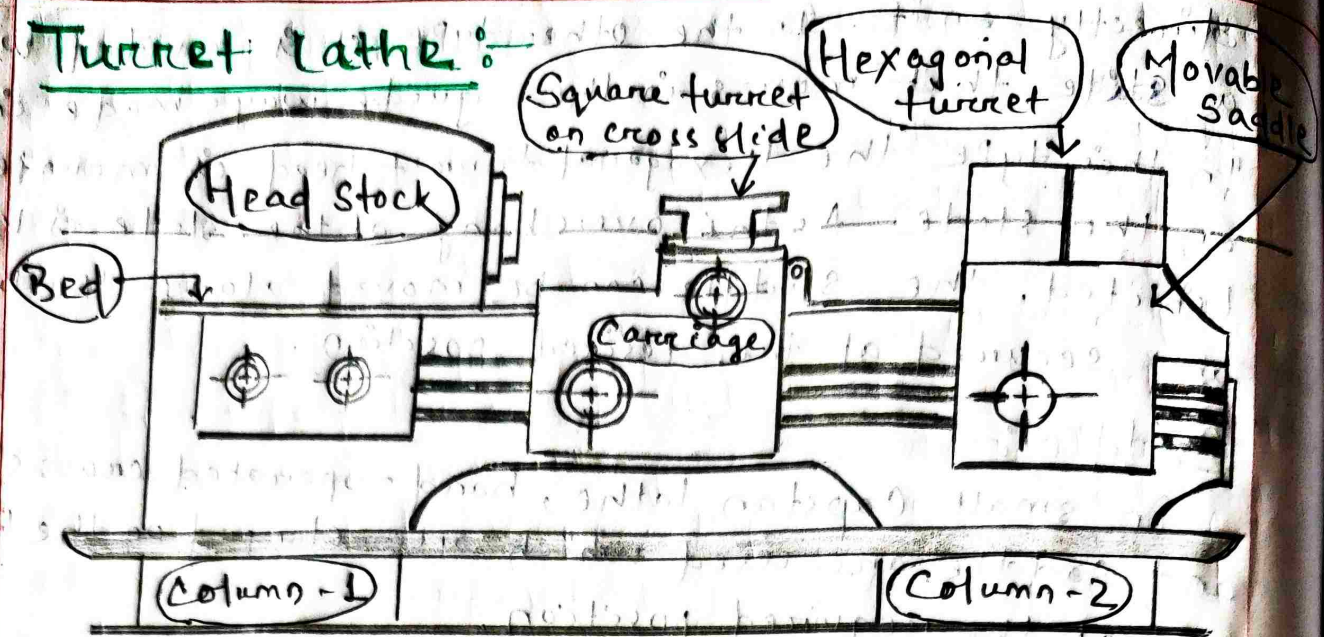 Turret Lathe :-
Square turret
on cross slide
Hexagonal
turret
Movable
Saddle
Head Stock
Bed
Carriage
Column-1
Column-2